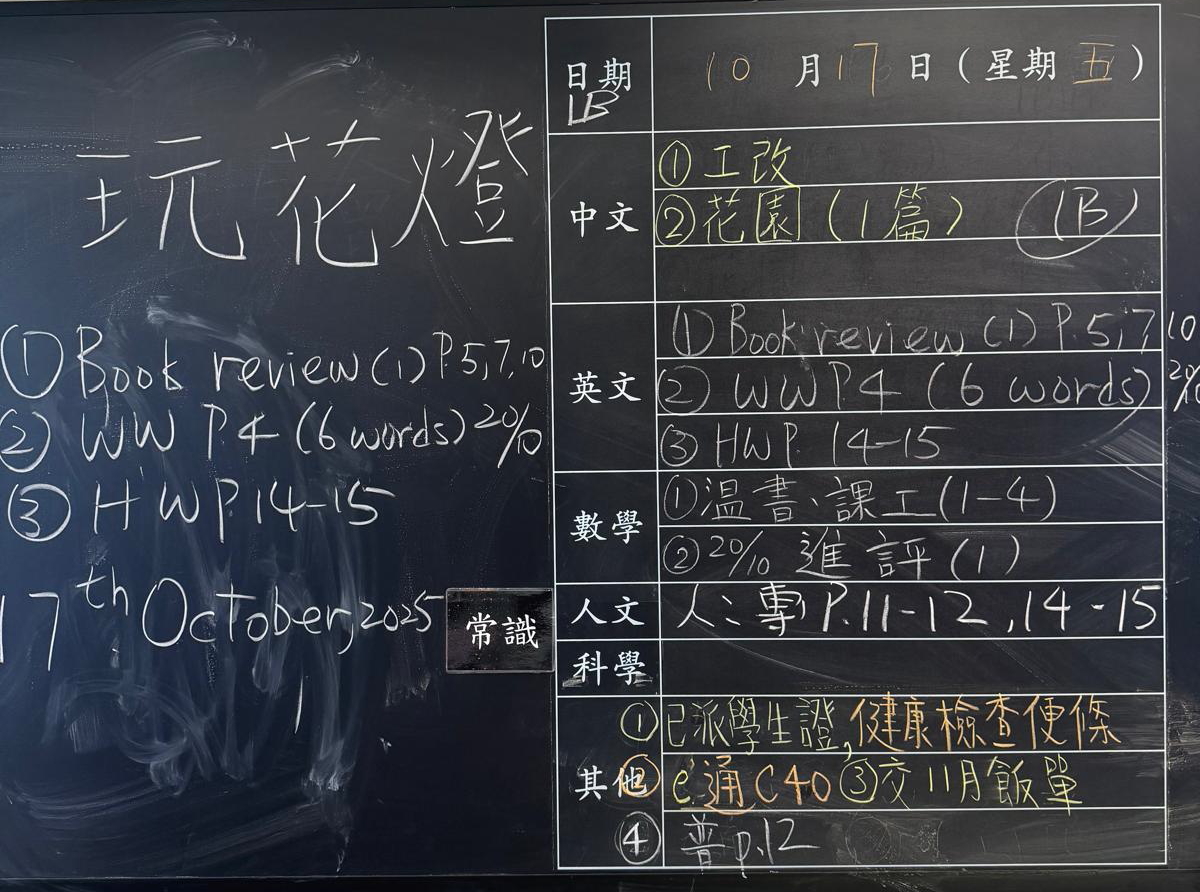 玩花燈
① Book review (1) P.5,7,10
② WW P.4 (6 words) 20/10
③ HW P.14-15
17th October, 2025
常識
日期 10月17日(星期五)
1B
中文
① 工改
② 花園(1篇) 1B
英文
① Book review (1) P.5,7,10
② WW P.4 (6 words) 20/10
③ HW P. 14-15
數學
① 温書、課工(1-4)
② 20/10 進評(1)
人文 人:專P.11-12,14-15
科學
其他
① 已派學生證,健康檢查便條
② e通C40 ③交11月飯單
④ 普p.12